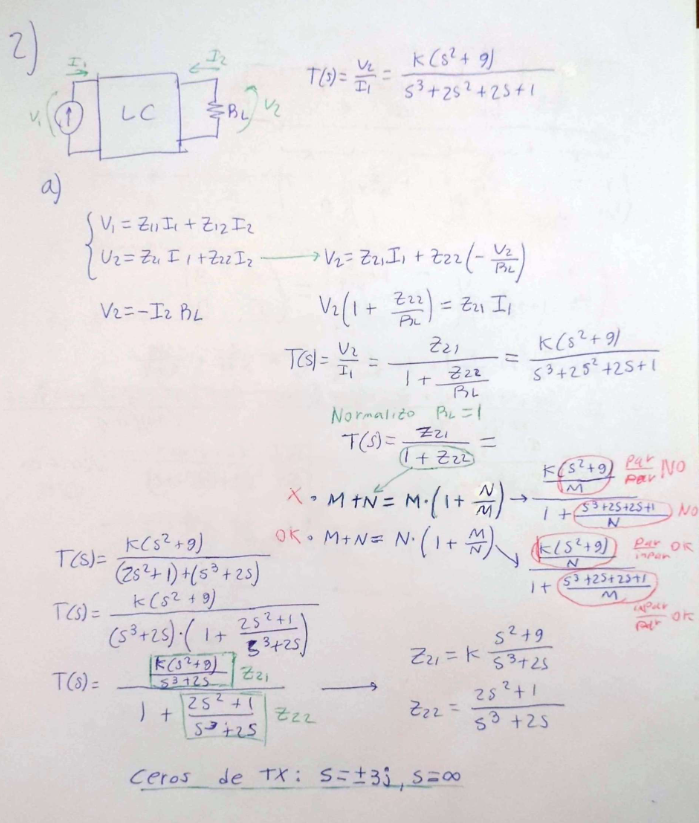 2)
I1 I2
V1 LC RL V2
T(s) = V2/I1 = K(s²+9)/(s³+2s²+2s+1)
a)
V1 = Z11 I1 + Z12 I2
V2 = Z21 I1 + Z22 I2 → V2 = Z21 I1 + Z22 (-V2/RL)
V2 = -I2 RL
V2 (1 + Z22/RL) = Z21 I1
T(s) = V2/I1 = Z21/(1 + Z22/RL) = K(s²+9)/(s³+2s²+2s+1)
Normalizo RL = 1
T(s) = Z21/(1 + Z22) =
X • M+N = M·(1 + N/M) → (K(s²+9)/M)/(1 + (s³+2s+2s+1)/N) par/par NO NO
OK • M+N = N·(1 + M/N) → (K(s²+9)/N)/(1 + (s³+2s+2s+1)/M) par/impar OK impar/par OK
T(s) = K(s²+9)/((2s²+1)+(s³+2s))
T(s) = K(s²+9)/((s³+2s)·(1 + (2s²+1)/(s³+2s)))
T(s) = (K(s²+9)/(s³+2s))/(1 + (2s²+1)/(s³+2s)) Z21 Z22 →
Z21 = K (s²+9)/(s³+2s)
Z22 = (2s²+1)/(s³+2s)
Ceros de TX: s=±3j, s=∞